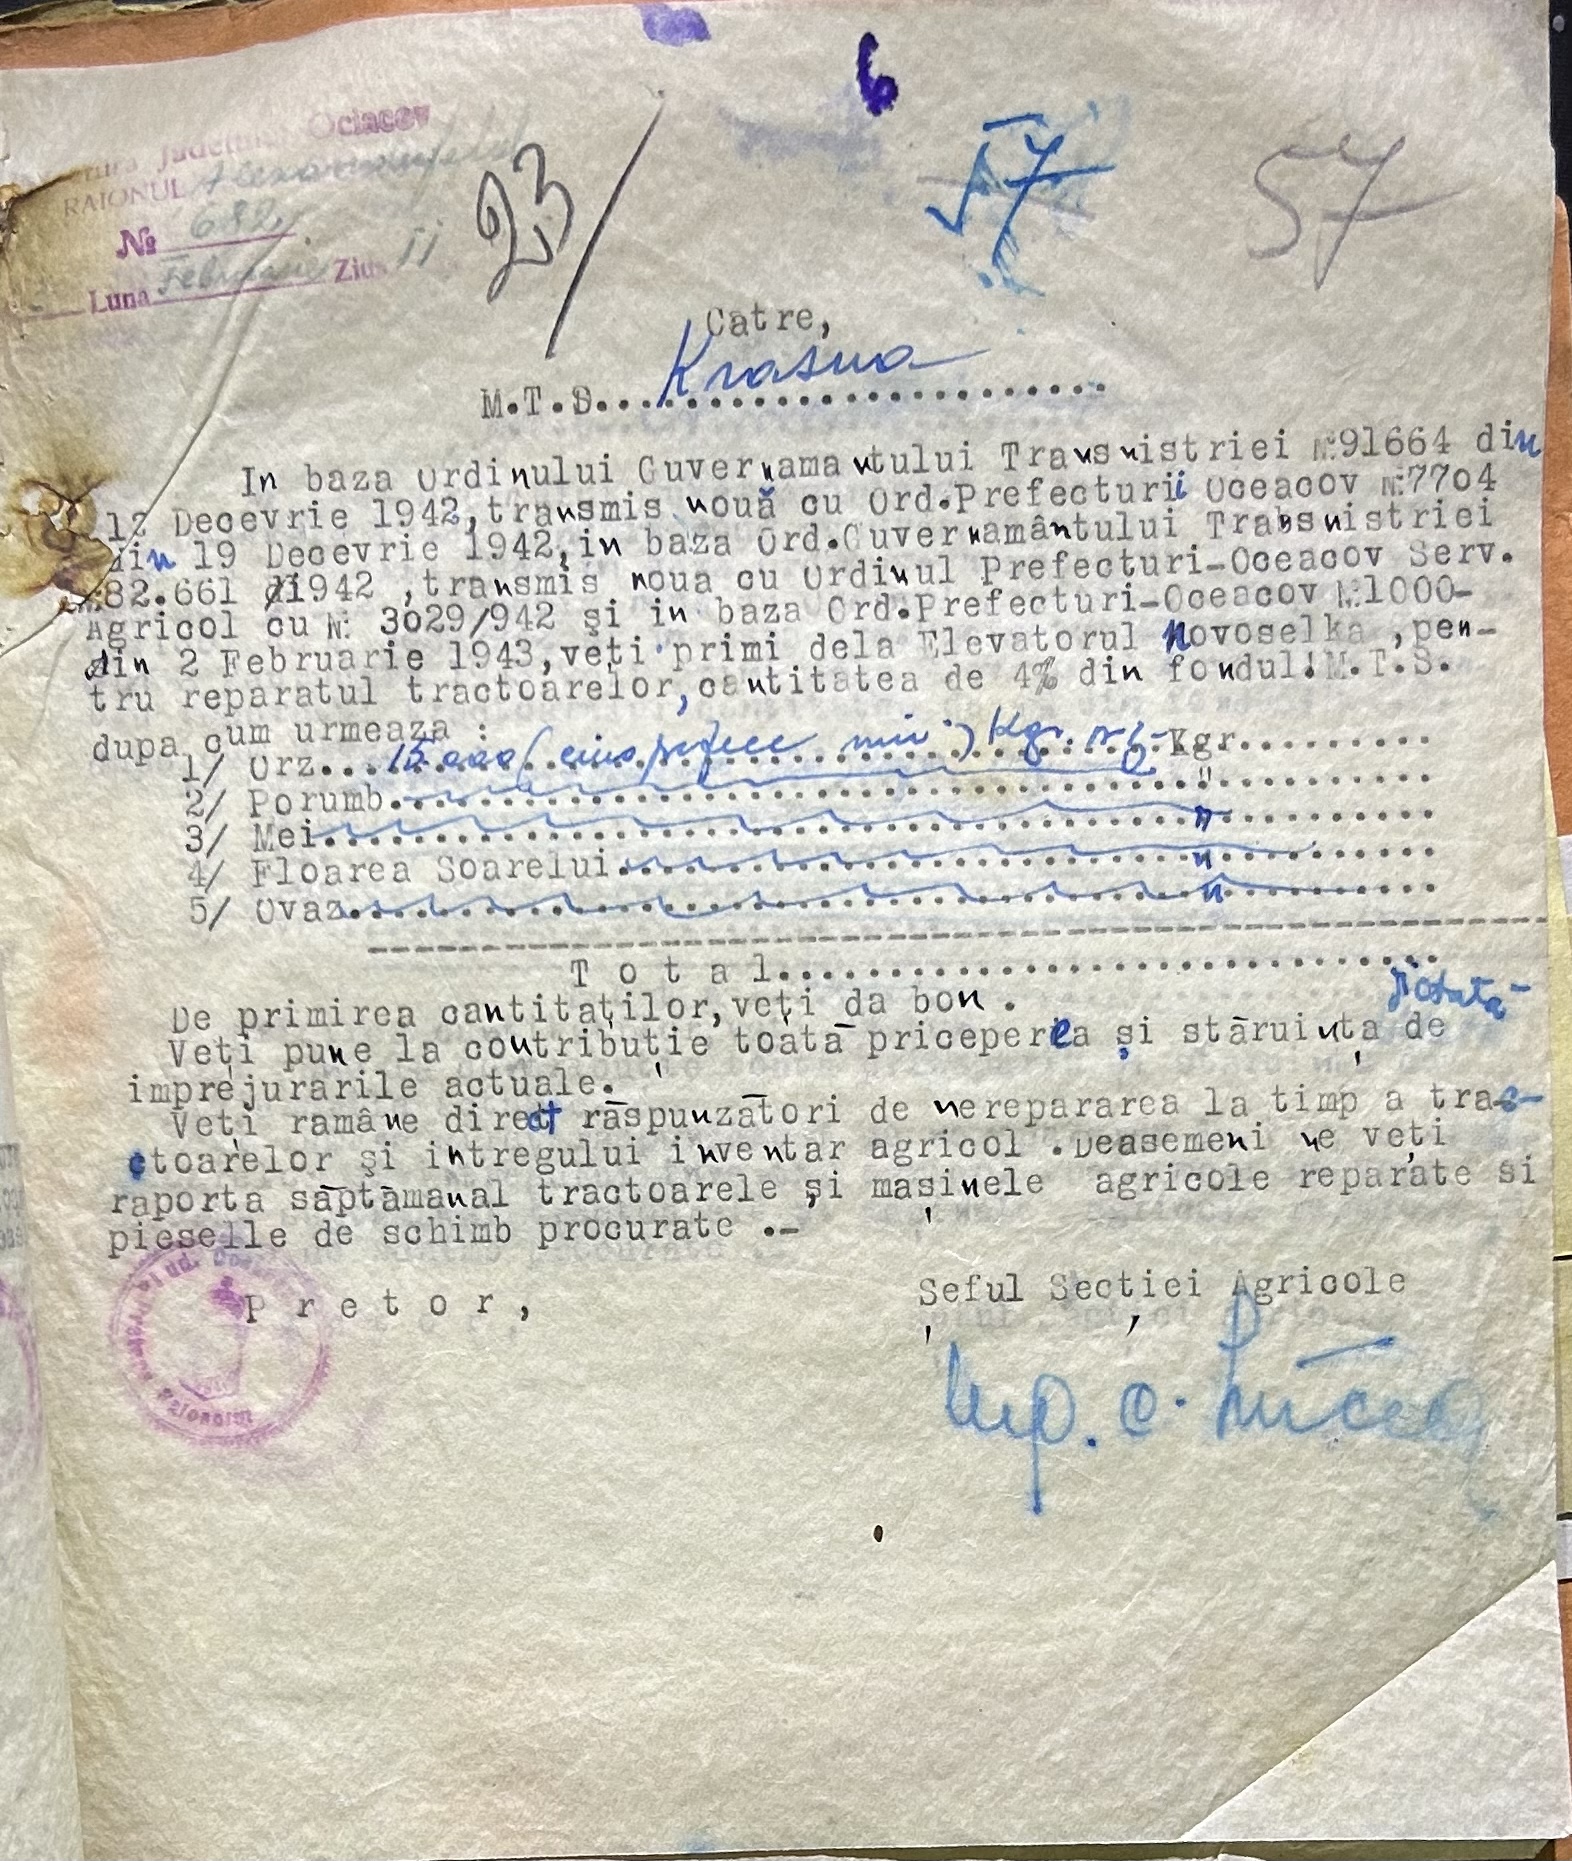 6
Judeţului Ociacov
RAIONUL
23/
57
57
№ 682
Luna Februarie Ziua 11
Catre,
M.T.S... Krasna
In baza Ordinului Guvernamantului Transnistriei №91664 din
12 Decevrie 1942,transmis nouă cu Ord.Prefecturii Oceacov №7704
din 19 Decevrie 1942,in baza Ord.Guvernamântului Trabsnistriei
№82.661 1942 ,transmis noua cu Ordinul Prefecturi-Oceacov Serv.
Agricol cu № 3029/942 şi in baza Ord.Prefecturi-Oceacov №1000-
din 2 Februarie 1943,veţi primi dela Elevatorul Novoselka ,pen-
tru reparatul tractoarelor,cantitatea de 4% din fondul!M.T.S.
dupa cum urmeaza :
1/ Orz... 15.000 ( mii ) Kgr. Kgr......
2/ Porumb...... "
3/ Mei...... "
4/ Floarea Soarelui...... "
5/ Ovaz...... "
T o t a l......
De primirea cantitaţilor,veţi da bon .
Veţi pune la contribuţie toată priceperea şi stăruinţa de
imprejurarile actuale.
Veţi ramâne direct răspunzători de nerepararea la timp a trac-
ctoarelor şi intregului inventar agricol .Deasemeni ne veţi
raporta săptămanal tractoarele şi maşinele agricole reparate si
pieselle de schimb procurate .-
P r e t o r ,
Şeful Secţiei Agricole